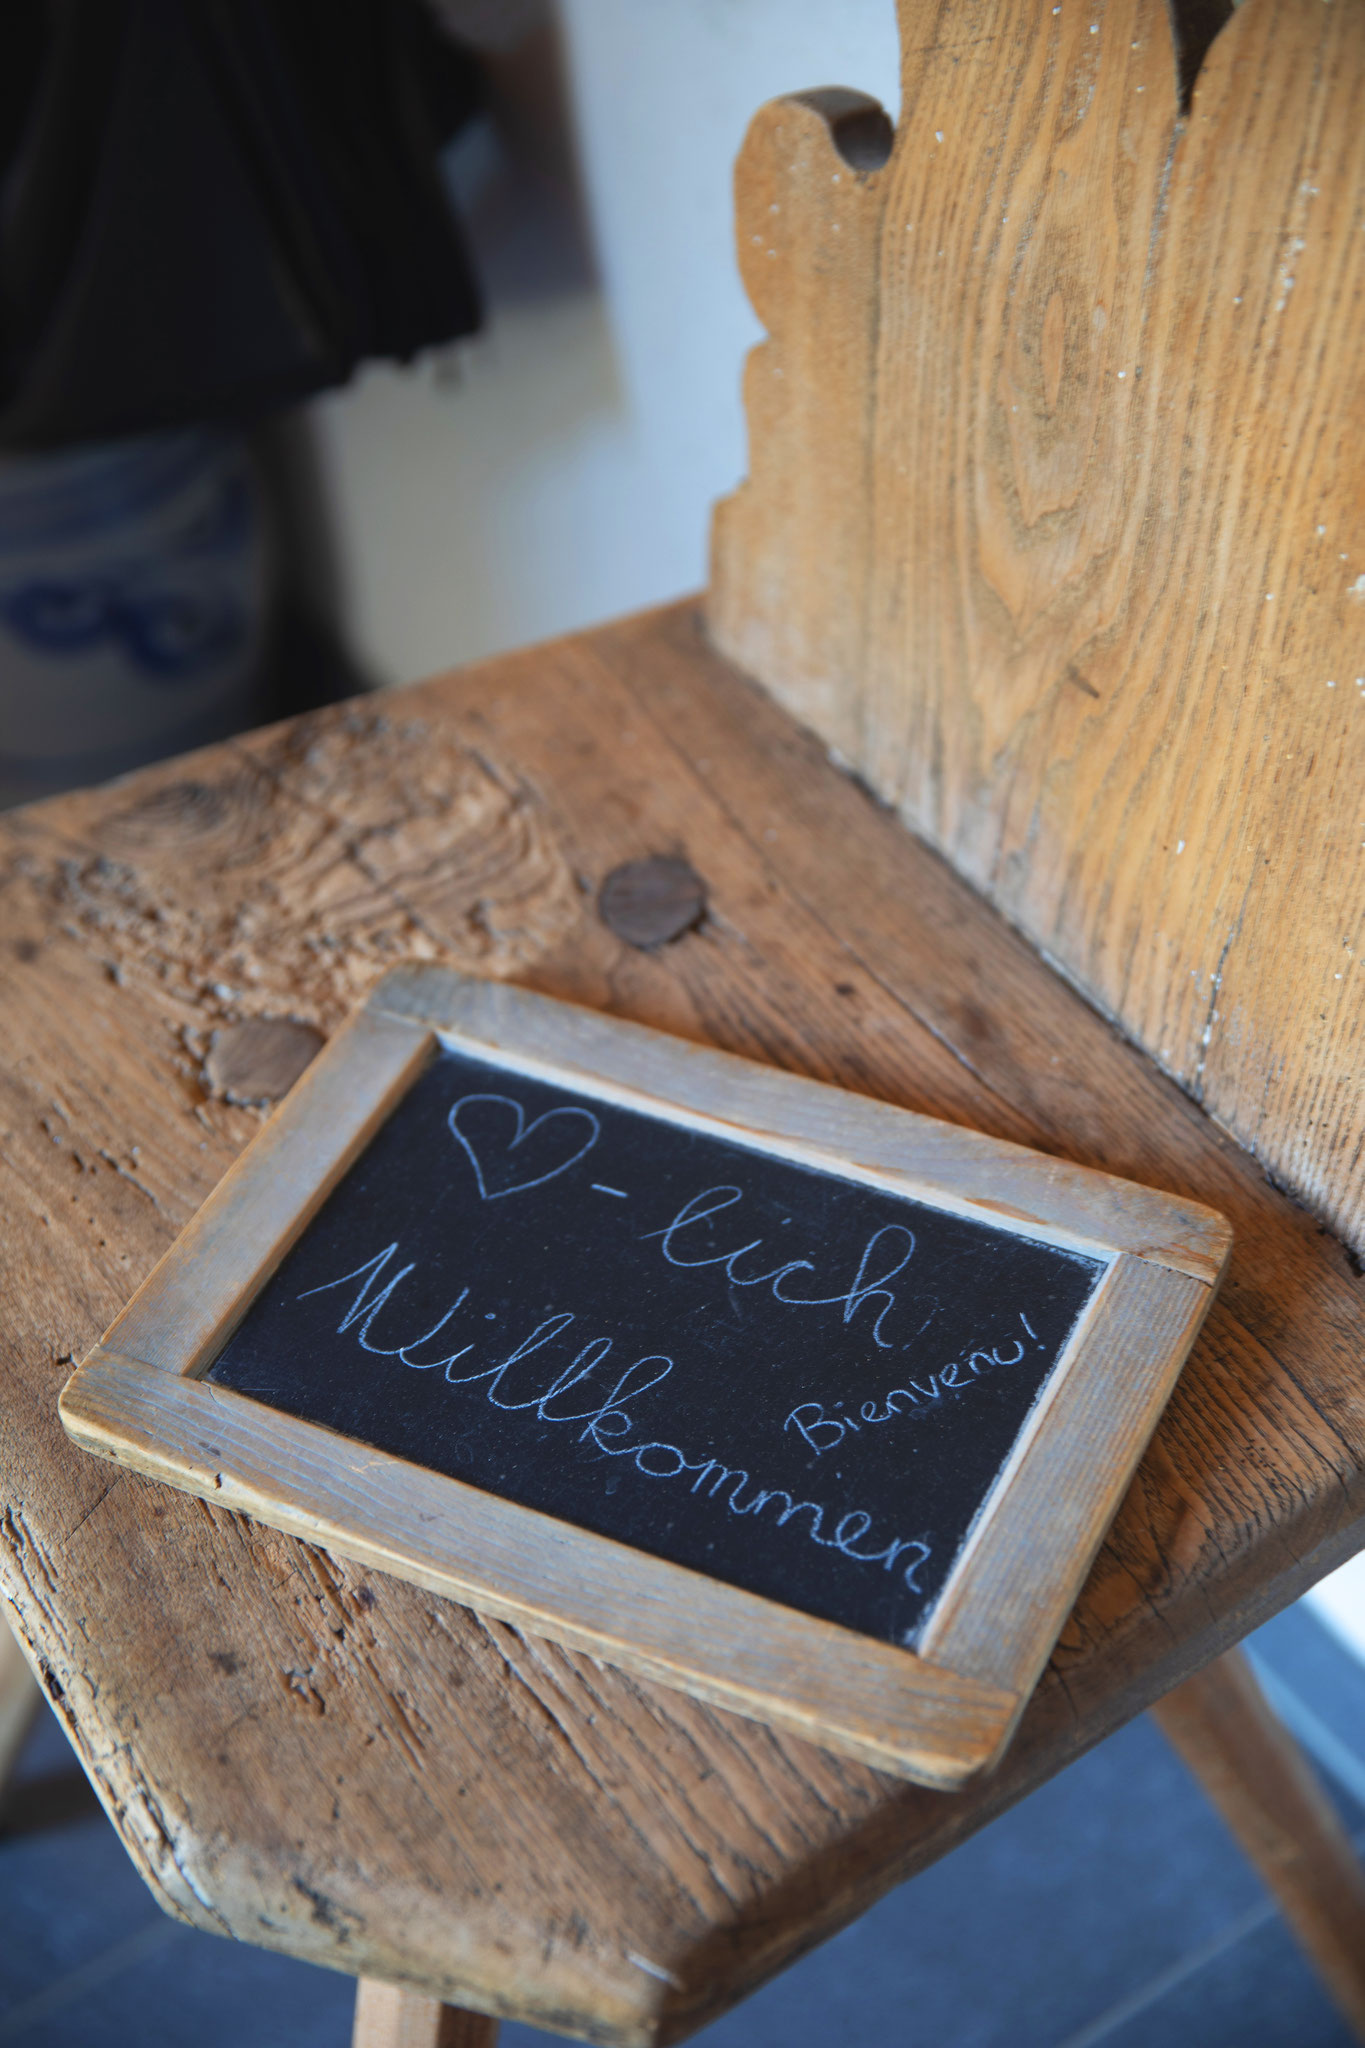 ♡-lich
Willkommen
Bienvenu!